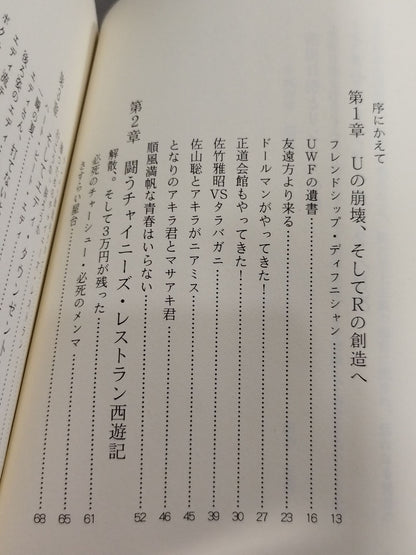 序にかえて
第1章 Uの崩壊、そしてRの創造へ
フレンドシップ・ディフニシャン 13
UWFの遺書 16
友遠方より来る 23
ドールマンがやってきた! 27
正道会館もやってきた! 30
佐竹雅昭VSタラバガニ 39
佐山聡とアキラがニアミス 45
となりのアキラ君とマサアキ君 46
順風満帆な青春はいらない 52
第2章 闘うチャイニーズ・レストラン西遊記
解散。そして3万円が残った 61
必死のチャーシュー・必死のメンマ 65
さすらい屋台 68